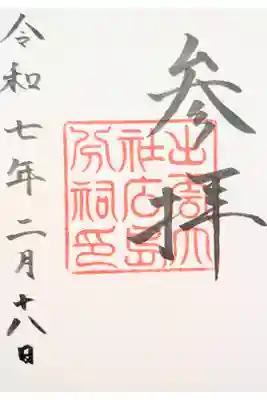 参拝
出雲大
社広島
分祠印
令和七年二月十八日